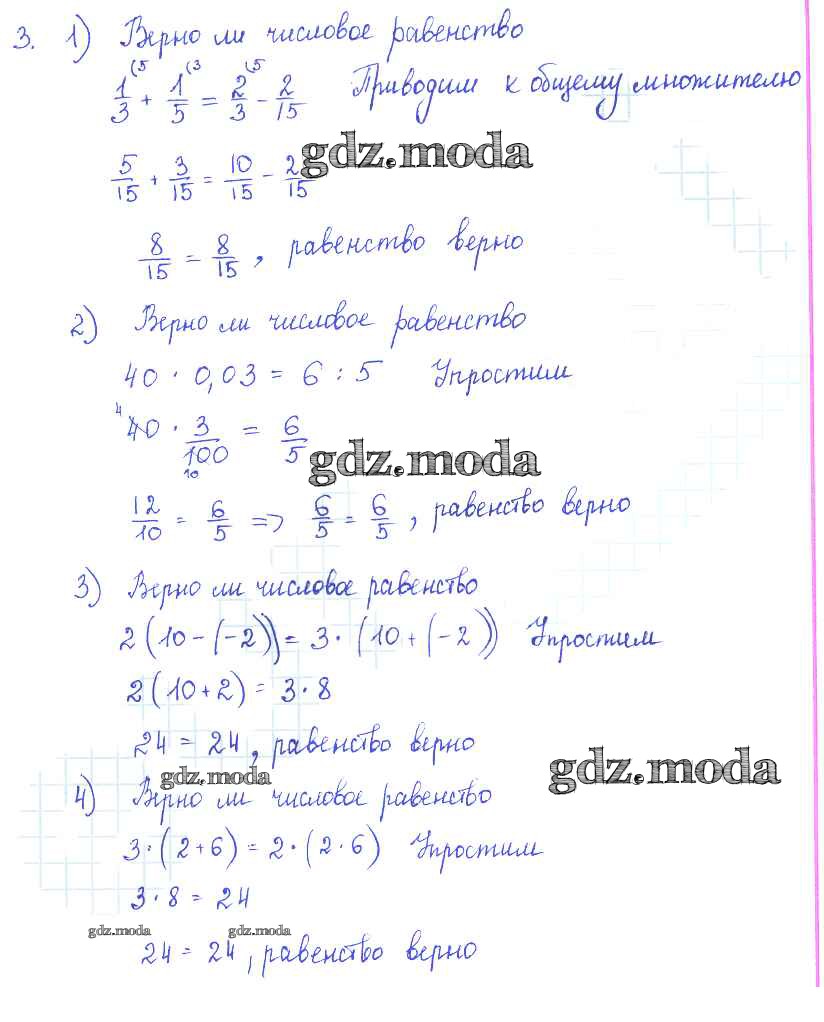 3. 1) Верно ли числовое равенство
1/3 (5 + 1/5 (3 = 2/3 (5 - 2/15 Приводим к общему множителю
gdz.moda
5/15 + 3/15 = 10/15 - 2/15
8/15 = 8/15, равенство верно
2) Верно ли числовое равенство
40 · 0,03 = 6 : 5 Упростим
4 40 · 3/100 10 = 6/5
gdz.moda
12/10 = 6/5 => 6/5 = 6/5, равенство верно
3) Верно ли числовое равенство
2(10-(-2)) = 3·(10+(-2)) Упростим
2(10+2) = 3·8
24 = 24, равенство верно
gdz.moda gdz.moda
4) Верно ли числовое равенство
3·(2+6) = 2·(2·6) Упростим
3·8 = 24
gdz.moda gdz.moda
24 = 24, равенство верно